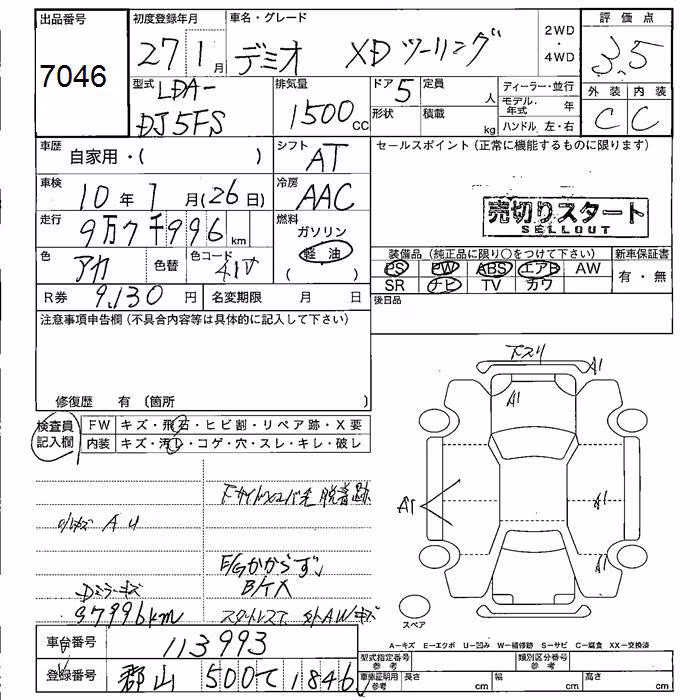 出品番号 初度登録年月 車名・グレード 2WD・4WD 評価点
7046 27 1月 デミオ XDツーリング 3.5
型式 LDA-DJ5FS 排気量 1500cc ドア 5 定員 人 ディーラー・並行 外装 内装
形状 積載 kg モデル年式 年 C C
ハンドル 左・右
車歴 自家用・( ) シフト AT セールスポイント(正常に機能するものに限ります)
車検 10年1月(26日) 冷房 AAC
売切りスタート
SELLOUT
走行 9万7千996km 燃料 ガソリン
軽油
( )
色 アカ 色替 色コード 41V
装備品(純正品に限り○をつけて下さい) 新車保証書
PS PW ABS エアB AW 有・無
SR ナビ TV カワ
R券 9,130円 名変期限 月 日 後日品
注意事項申告欄(不具合内容等は具体的に記入して下さい)
修復歴 有 (箇所 )
検査員記入欄 FW キズ・飛石・ヒビ割・リペア跡・X要
内装 キズ・汚レ・コゲ・穴・スレ・キレ・破レ
下スリ A1
A1
A1 A1
A1
脱着跡
AU
E/Gかからず
B/TX
Dミラーキズ
97996km 外AWキズ
スペア
A=キズ E=エクボ U=凹み W=補修跡 S=サビ C=腐食 XX=交換済
車台番号 113993
型式指定番号 参考 類別区分番号 参考
登録番号 郡山 500て1846
車庫証明用 参考 長さ cm 幅 cm 高さ cm